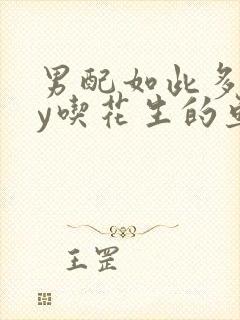 男配如此多
y喫花生的
王罡